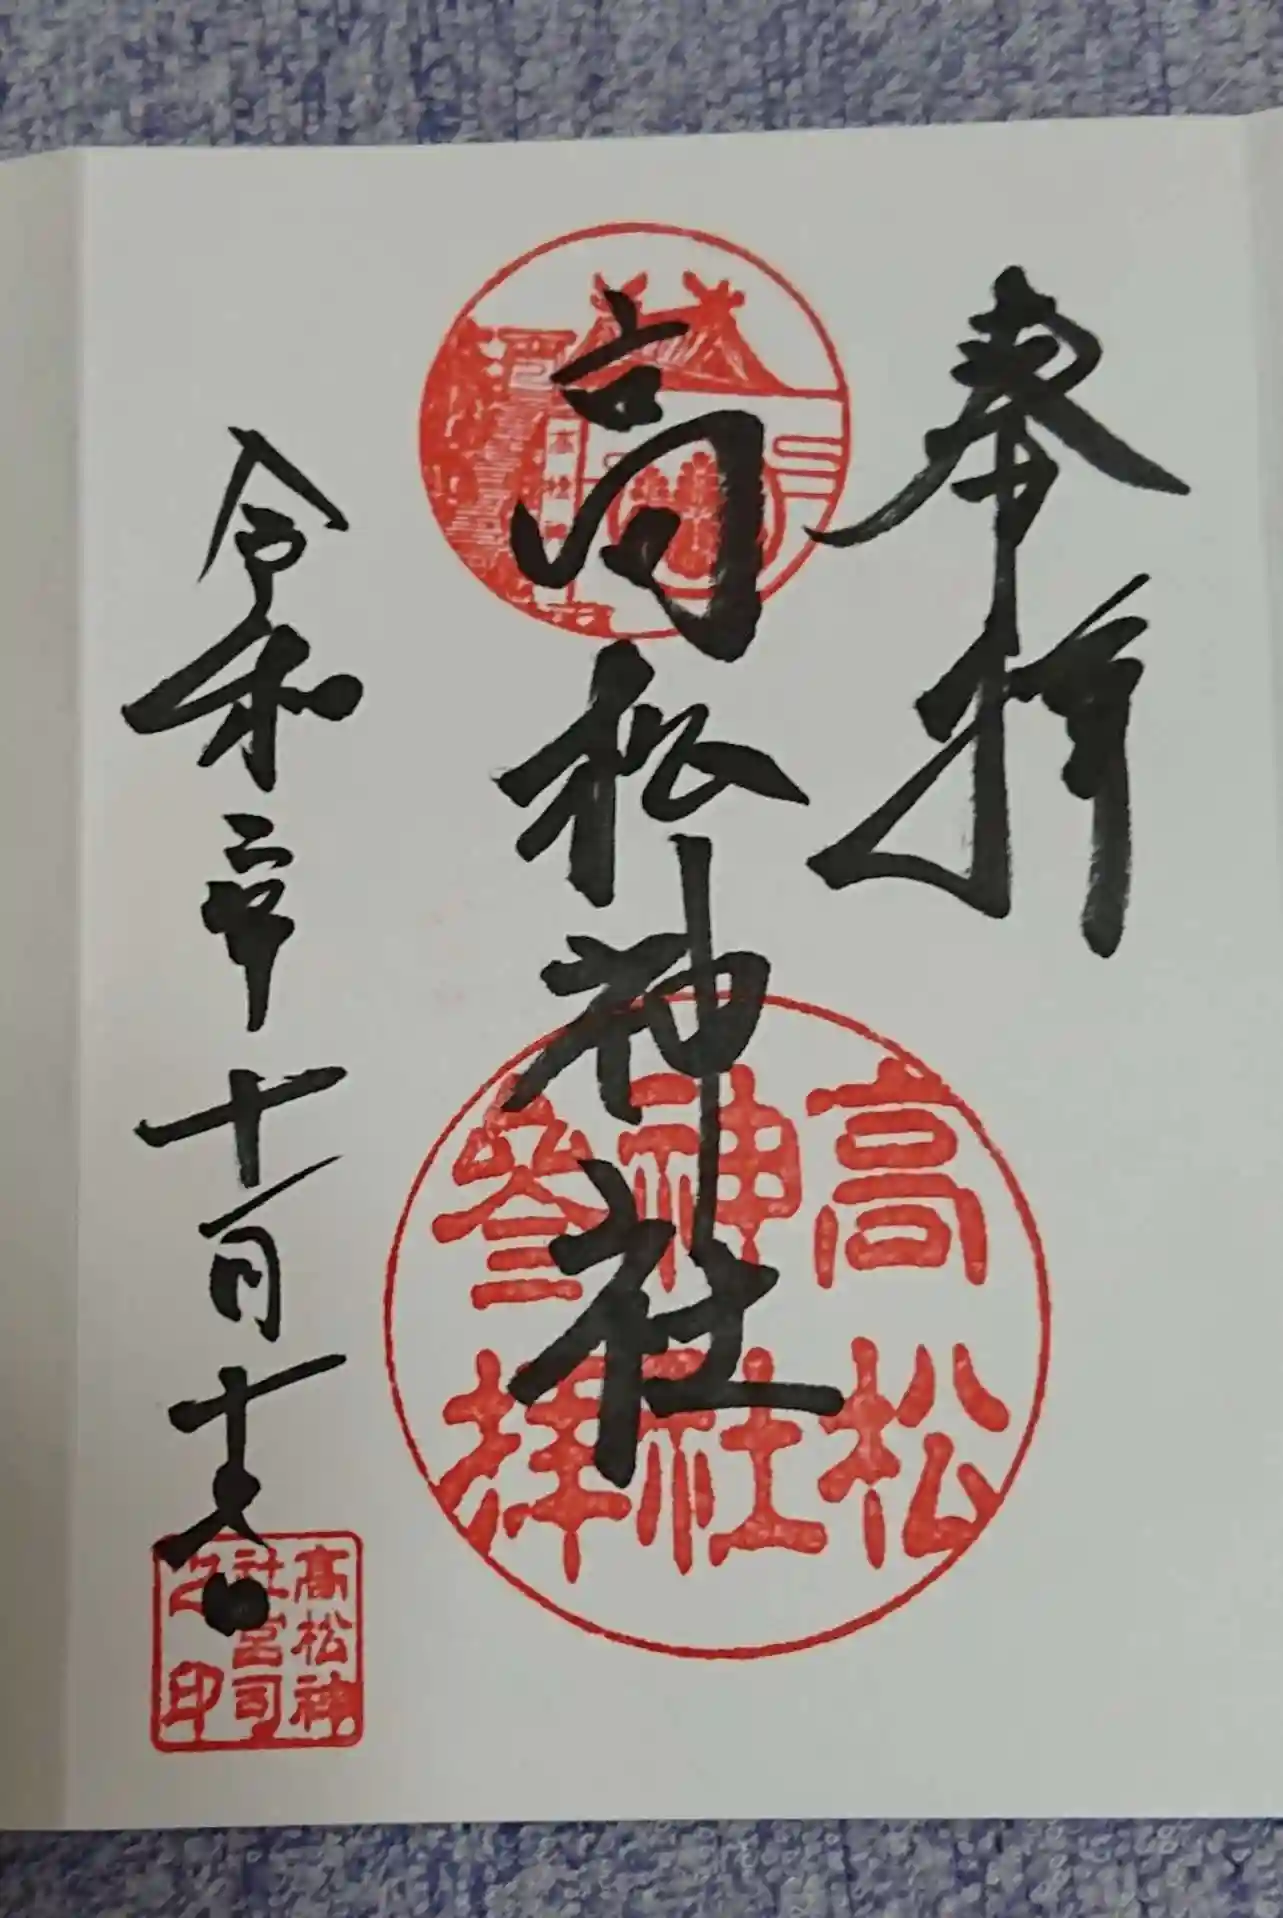 奉拝
高松神社
高松
神社
参拝
令和二年
高松神
社宮司
之印